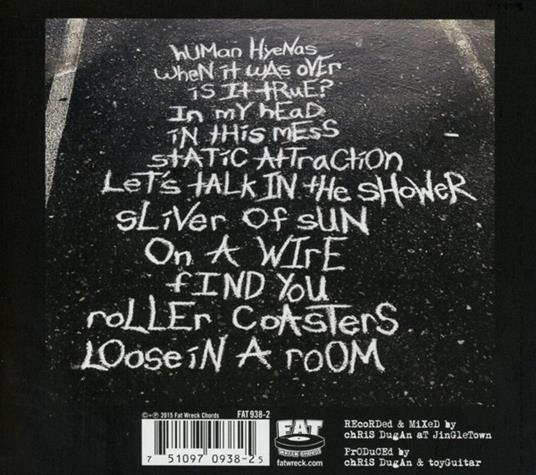 hUMAN HyENAS
wheN it wAs oVEr
is It trUE?
In mY hEAD
iN tHis mESS
stAtiC AttrACtiON
LEt's tALk IN thE sHOWER
sLiVer Of sUN
On A WIrE
fIND YOU
roLLEr COAsTErS
LOose iN A roOM
©+℗ 2015 Fat Wreck Chords FAT938-2
7 51097 0938-2 5
FAT
WRECK CHORDS
fatwreck.com
REcoRDed & MiXeD by
chRiS DugAn aT JinGleTown
PrODuCEd by
chRiS DugAn & toyGuitar